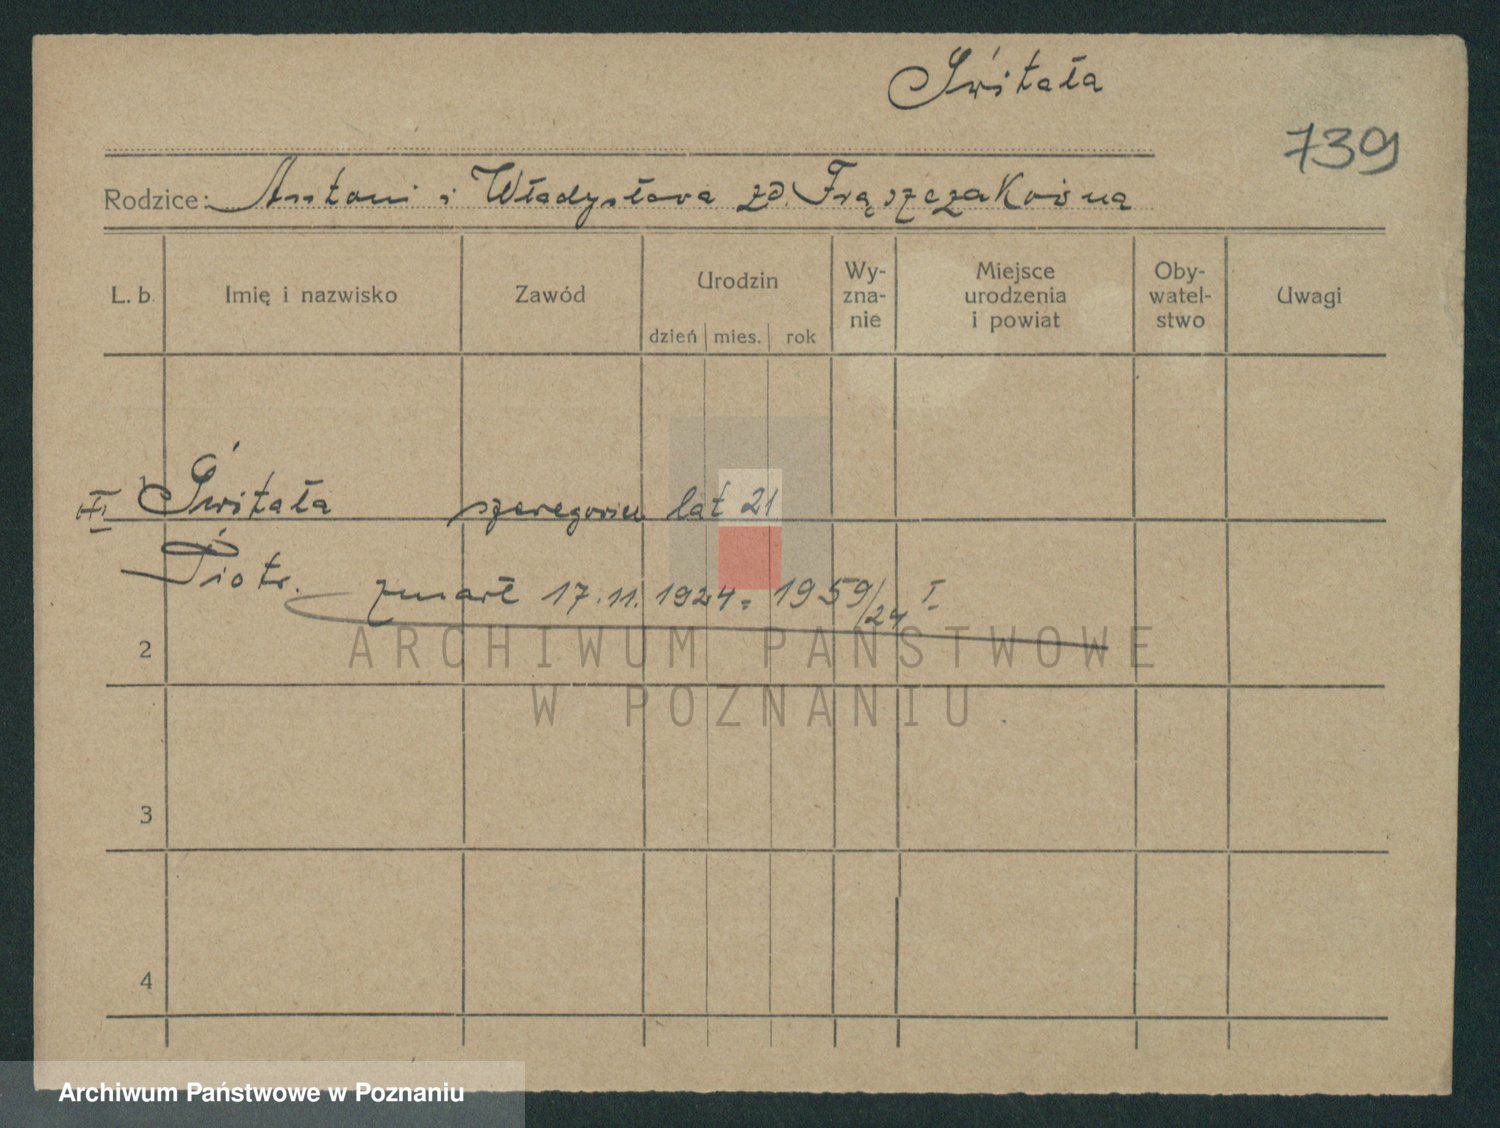 Świtała
739
Rodzice: Antoni i Władysława zd. Frąszczakówna
L. b. Imię i nazwisko Zawód Urodzin dzień mies. rok Wy-zna-nie Miejsce urodzenia i powiat Oby-watel-stwo Uwagi
1 Świtała szeregowiec lat 21
Piotr. zmarł 17.11.1924. 1959/24 I
2
ARCHIWUM PAŃSTWOWE
W POZNANIU
3
4
Archiwum Państwowe w Poznaniu